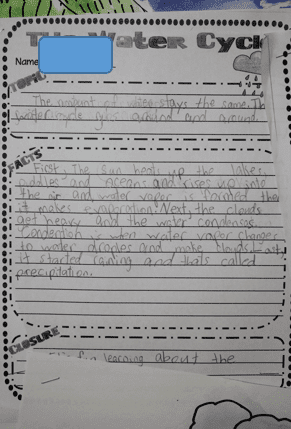 The Water Cycle
Name
TOPIC
The amount of water stays the same. Th
water cycle gos around and around.
FACTS
First, The sun heats up the lakes,
puddles and oceans and rises up into
the air and water vapor is formed then
it makes evaporation. Next, the clouds
get heavy and the water condenses.
Condention is when water vapor changes
to water droples and make clouds. Last
it started raining and thats called
precipitation.
CLOSURE
fun learning about the